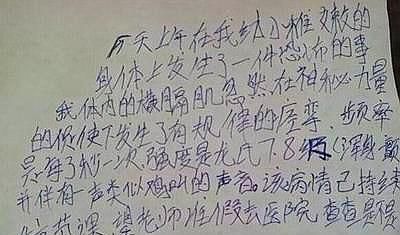 今天上午在我幼小稚嫩的
身体上发生了一件恐怖的事
我体内的横膈肌忽然在神秘力量
的促使下发生了有规律的痉挛 频率
是每7秒一次,强度是尤氏7.8级(浑身颤
并伴有一声类似鸡叫的声音。该病情已持续
节课,望老师准假去医院查查是